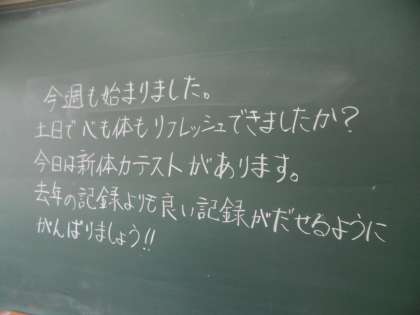 今週も始まりました。
土日で心も体もリフレッシュできましたか?
今日は新体力テストがあります。
去年の記録よりも良い記録がだせるように
がんばりましょう!!